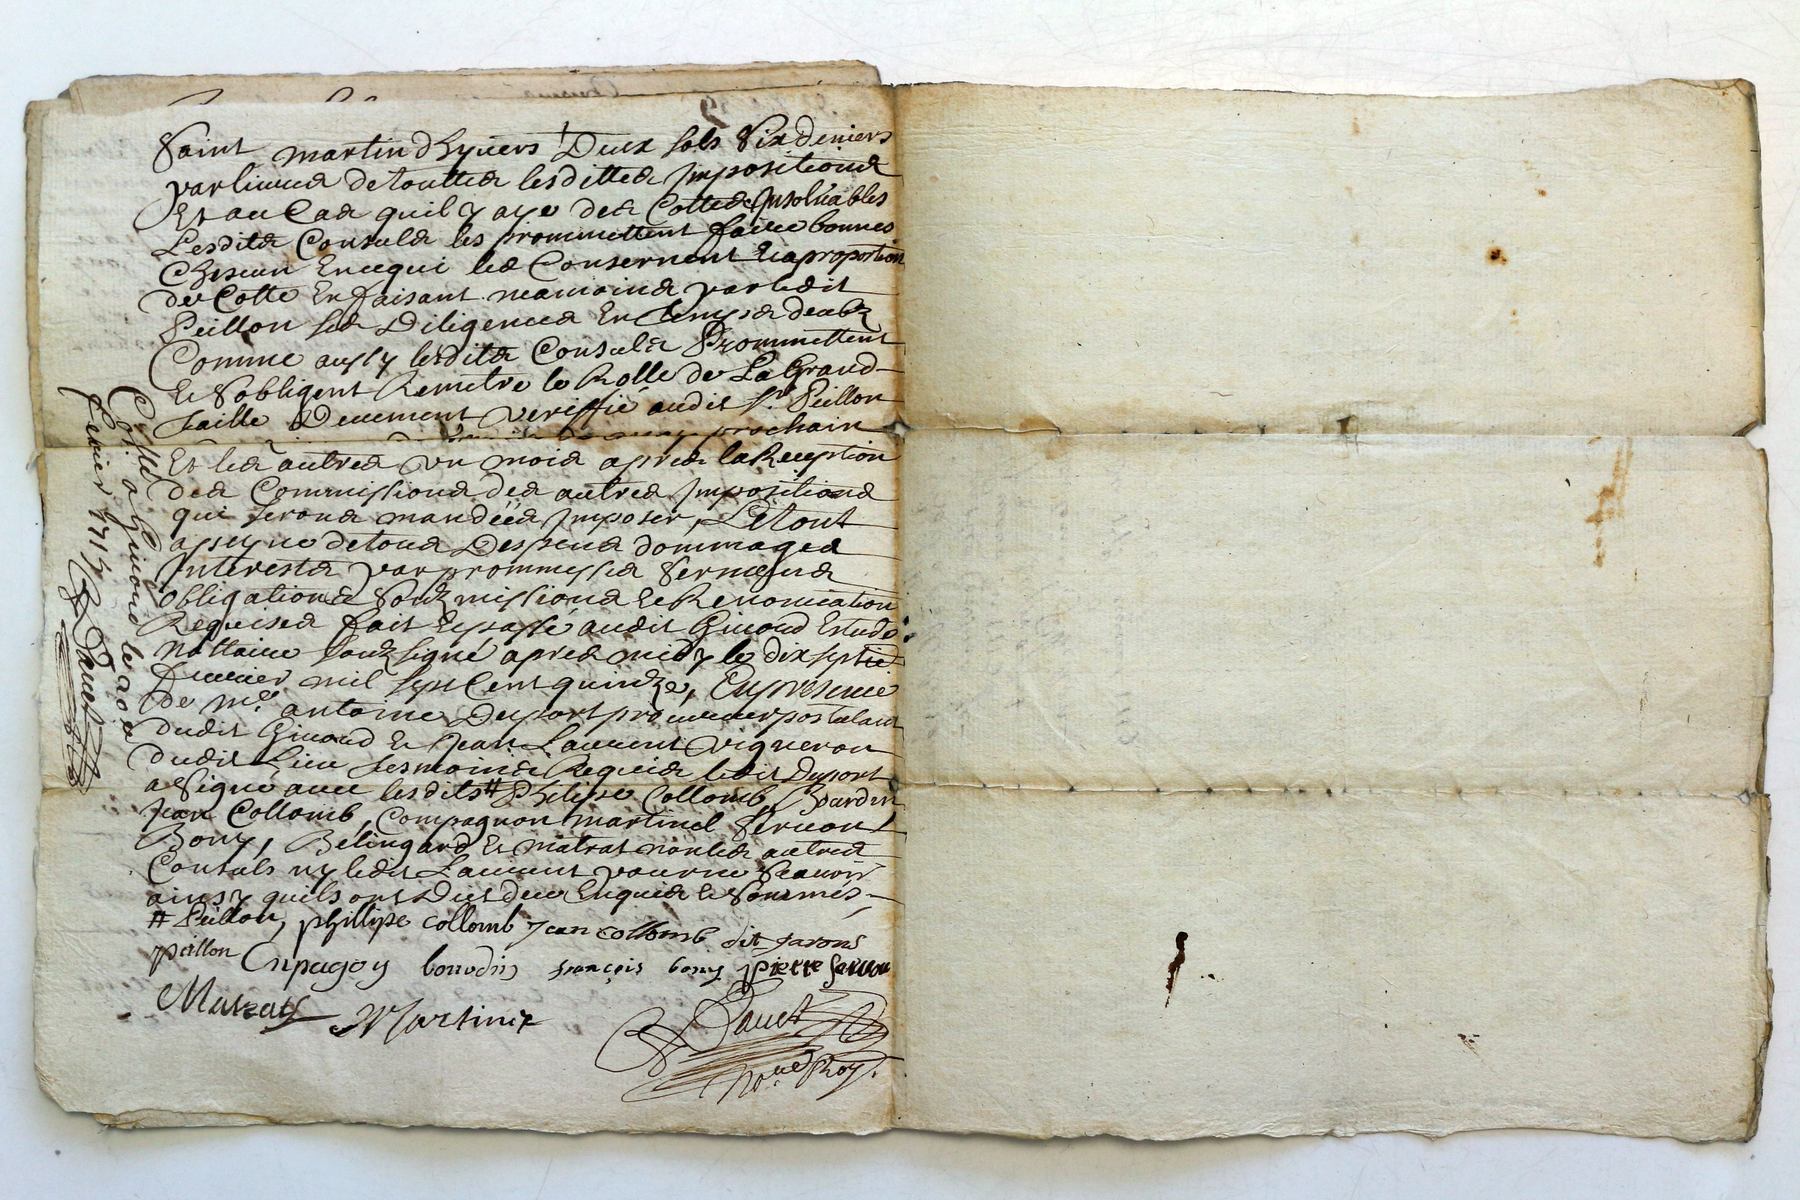 Saint martin dhyuers Deux sols Six deniers
par liures de touttes lesdittes Impositions
Et au Cas quil y aye des Cottes Insoluables
Lesdits Consuls les prommettent faire bonnes
Chascun En ce qui les Consernent Et a proportion
de Cotte En faisant neamoins par ledit
Peillon ses Diligences En temps deub
Comme aussy lesdits Consuls Prommettent
Et Sobligent Remetre le Rolle de La Grand
taille Deuement veriffié audit Sr. Peillon
prochain
Et les autres vn mois apres la Reception
des Commissions des autres Impositions
qui seronts mandées Imposer, Le tout
a peyne de tous Despens dommages
Interests par prommesses Serments
obligations Soubzmissions Et Renonciation
Requises fait Et passé audit Giuord Estude
Nottaire soubzsigné apres midy le dix septie
feurier mil sept Cent quindze, En presence
de me. antoine Duport procureur postulant
dudit Giuord Et Jean Laurent vigneron
dudit Lieu tesmoins Requis ledit Duport
a Signé auec lesdits # Phelipe Collomb, Bourdin
Jean Collomb, Compagnon martinet Seruont
Bony, Belingard Et matrat non les autres
Consuls ny ledit Laurent pour ne Scauoir
ainsy quils ont Dict de ce Enquis Et Sommés
# Peillon, phillipe collomb jean collomb dit
peillon Cnpagoy bourdin françois bony pierre seruon
Matrat Martinet
Dauet
No.re Roy.
Collé a Giuord le
feurier 1715
Dauet